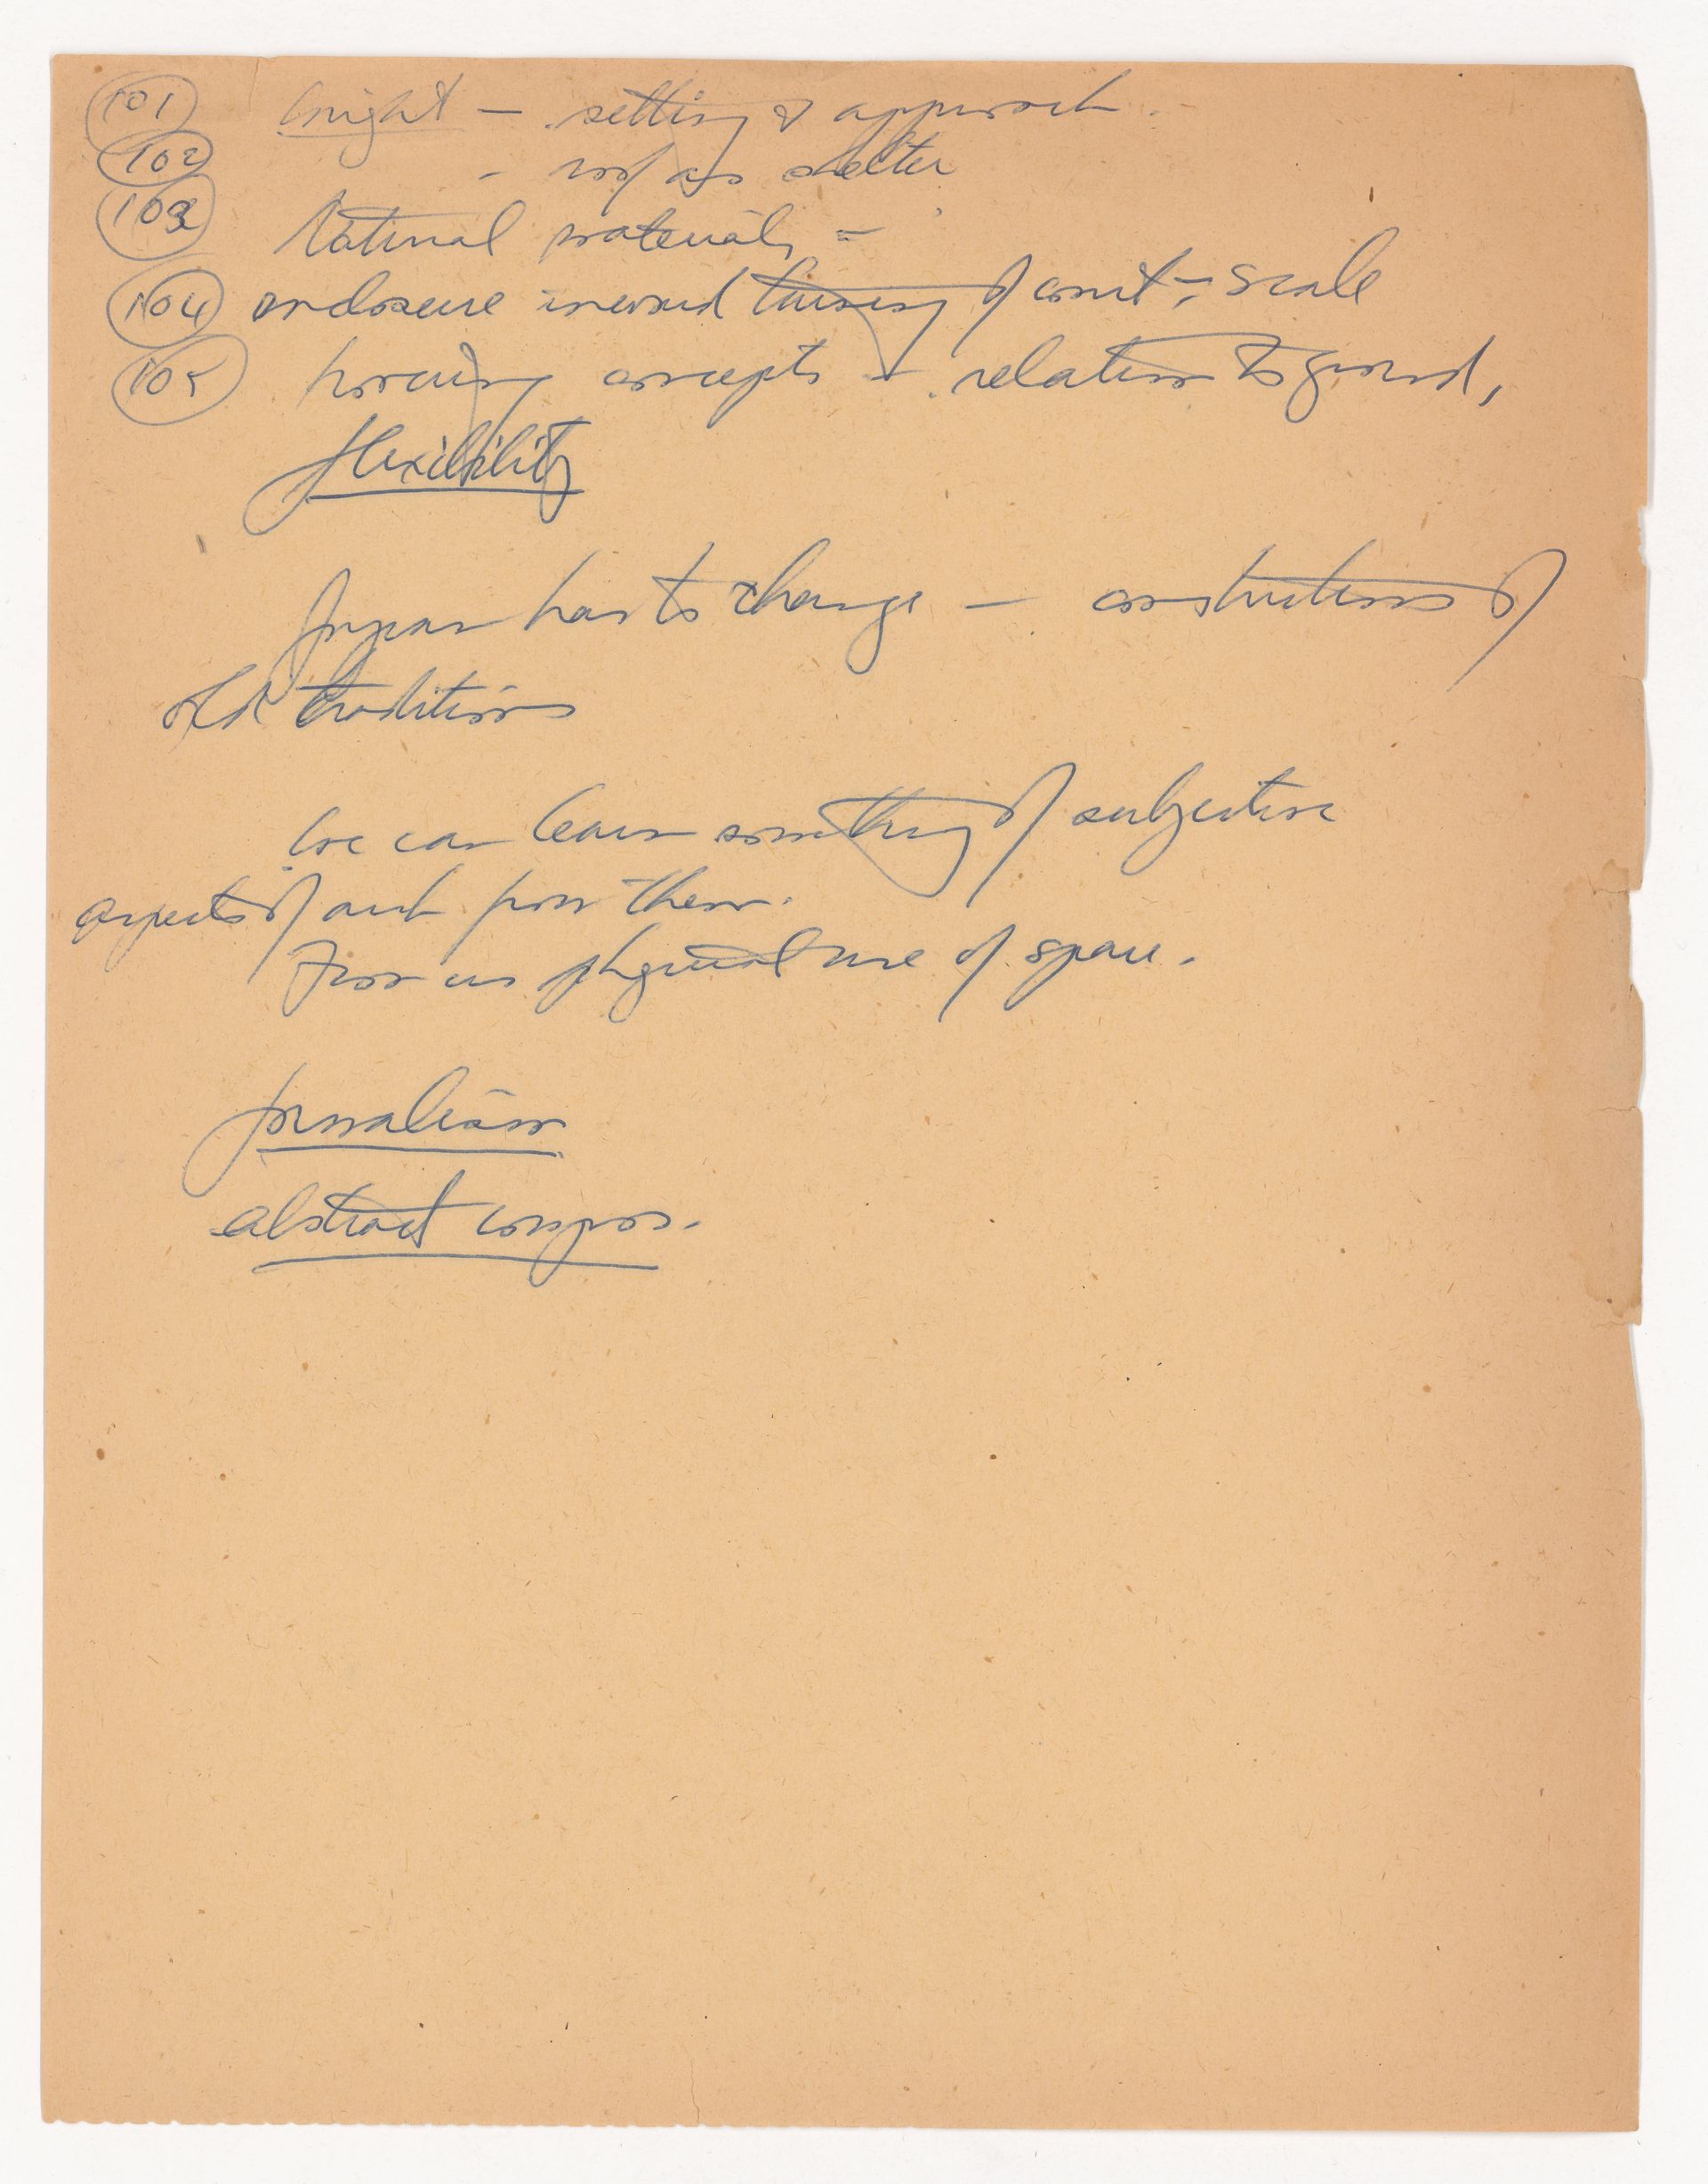 101 Wright — setting & approach.
102 - roof as shelter
103 Natural materials -
104 enclosure inward turning of court - scale
105 housing concepts - relation to ground,
flexibility
Japan has to change — constrictions of
old traditions
We can learn something of subjective
aspects of arch from them.
From us physical use of space.
formalism
abstract compos.